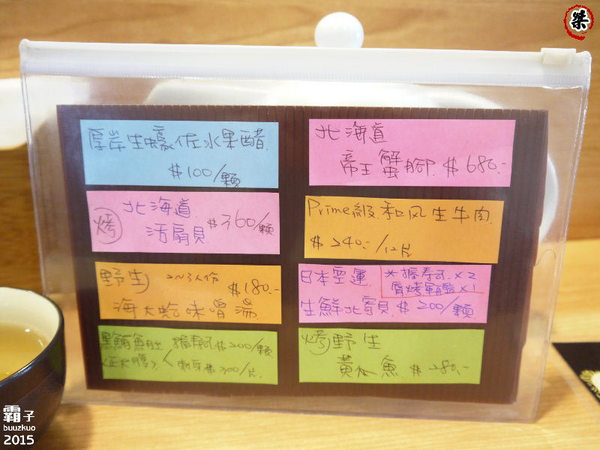 厚岸生蠔佐水果醋
$100/顆
(烤) 北海道
活扇貝 $360/顆
野生 2~3人份 $180.-
海大蛤味噌湯
黑鮪魚肚 握壽司$200/顆
刺身$300/片
北海道
帝王蟹腳 $680.-
Prime級和风生牛肉
$240.-/12片
日本空運 *握寿司×2
生鮮北寄貝 $200/顆
(烤)野生
黃魚 $280.-
桀
霸子
buuzkuo
2015